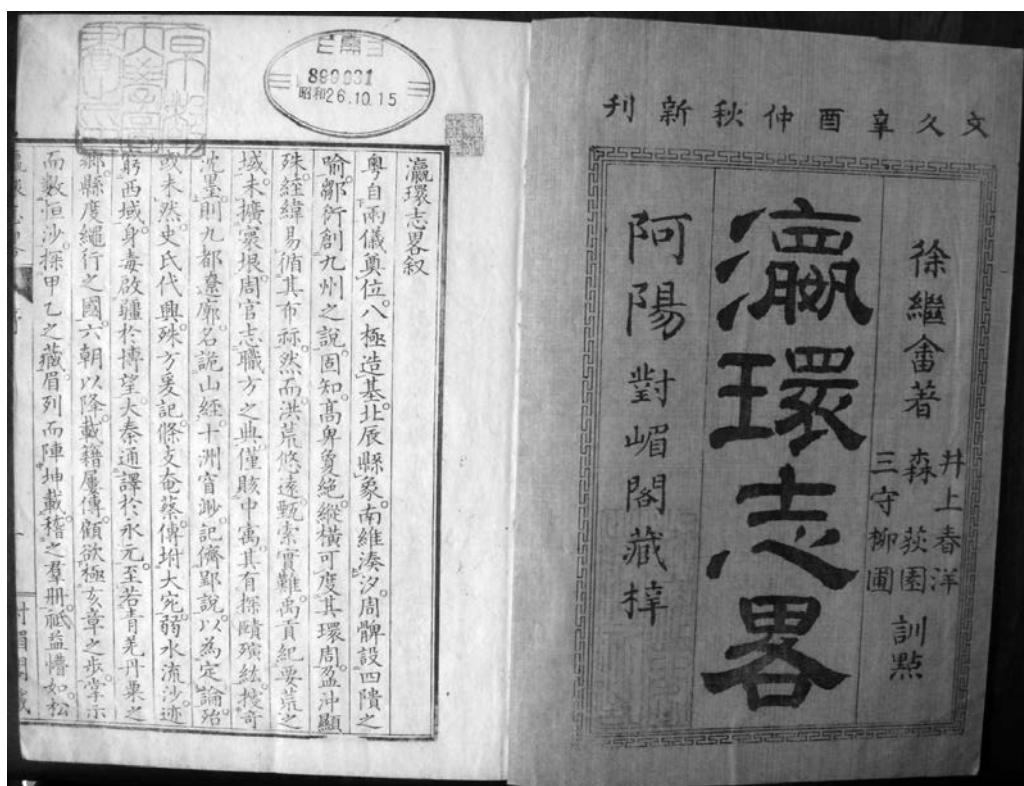 文久辛酉仲秋新刊
徐繼畬著
井上春洋
森荻園
三守柳圃
訓點
瀛環志畧
阿陽對嵋閣藏梓
899031
昭和26.10.15
瀛環志畧叙
粤自兩儀奠位。八極造基。北辰縣象。南維湊汐。周髀設四隤之
喻。鄒衍創九州之說。固知高卑夐絕。縱橫可度。其環周盈沖顯
殊。経緯易循。其布祘。然而洪荒悠遠。甄索實難。禹貢紀要荒之
域。未擴寰垠。周官志職方之典。僅賅中寓。其有探賾殯紘。捜奇
沈墨。則九都遼廓。名詭山經。十洲窅眇。記儕郢說。以為定論。殆
或未然。史氏代興。殊方爰記。條支奄蔡。傳坿大宛。弱水流沙。迹
窮西域。身毒啟疆於博望。大秦通譯於永元。至若青羌丹粟之
鄉。縣度繩行之國。六朝以降。載籍屢傳。顧欲極亥章之步。掌示
而數恒沙。探甲乙之藏。眉列而陣坤載。稽之羣册。祗益懵如。松